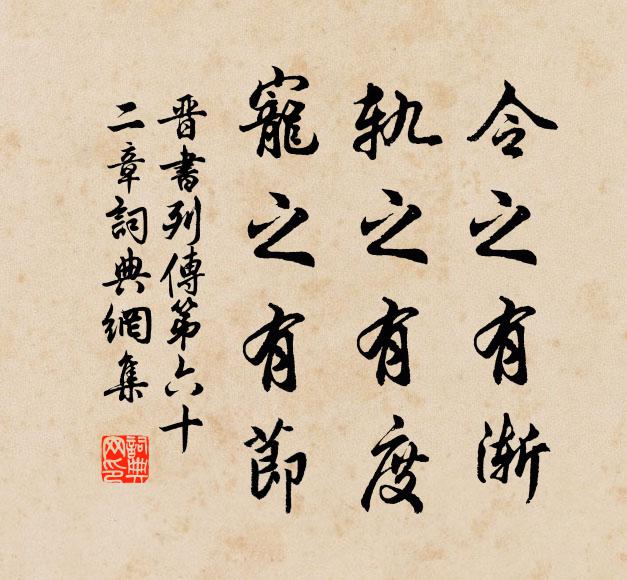 令之有漸
軌之有度
寵之有節
晋書列傳第六十
二章詞典網集
詞典網印